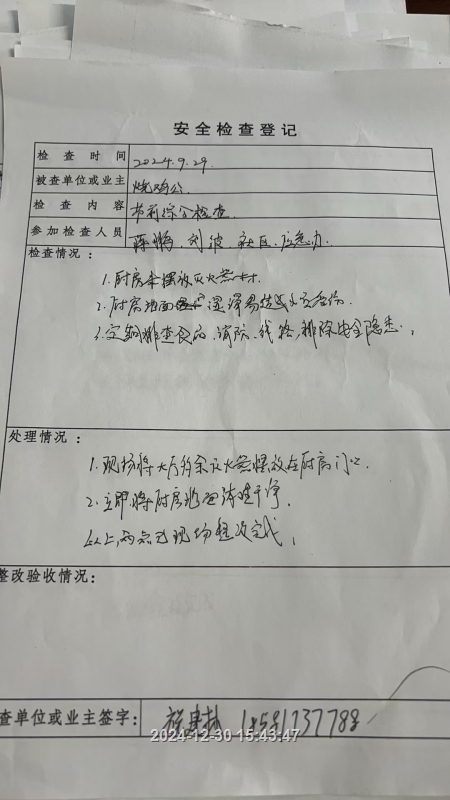 安全检查登记
检查时间 2024.9.29.
被查单位或业主 烧鸡公
检查内容 节前综合检查
参加检查人员 陈鹏、刘波、社区、应急办
检查情况：
1. 厨房未摆放灭火器材.
2. 厨房地面湿滑易造成人员受伤
3. 定期排查食品、消防、线路，排除安全隐患.
处理情况：
1. 现场将大厅多余灭火器摆放在厨房门口.
2. 立即将厨房地面清理干净.
以上两点已现场整改完成.
整改验收情况：
查单位或业主签字：
2024-12-30 15:43:47